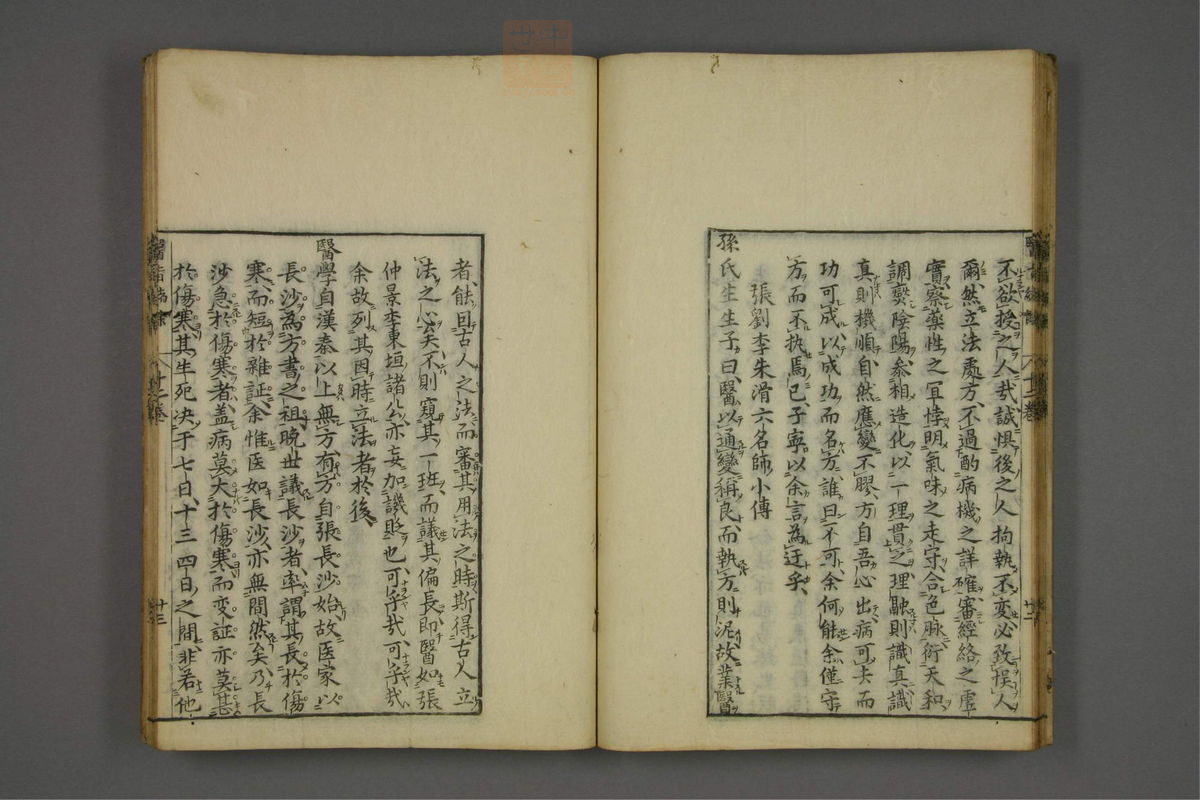 不欲授之人哉誠惧後之人拘執不変必致誤人
爾然立法處方不過酌病機之詳確審經絡之虛
實察藥性之冝悖明氣味之走守合色脉衍天和
調爕陰陽參相造化以一理貫之理融則識真識
真則機順自然應變不膠方自吾心出病可卡而
功可成以成功而名方誰曰不可余何能余僅守
方而不执焉已子寧以余言為迂乎
張劉李朱滑六名師小傳
孫氏生生子曰醫以通變稱良而執方則泥故業醫
者能囙古人之法而審其用法之時斯得古人立
法之心矣不則窺其一班而議其偏長即醫如張
仲景李東垣諸公亦妄加譏貶也可乎哉可乎哉
余故列其因時立法者於後
醫學自漢秦以上無方有方自張長沙始故医家以
長沙為方書之祖晚世議長沙者率謂其長於傷
寒而短於雜証余惟医如長沙亦無間然矣乃長
沙急於傷寒者盖病莫大於傷寒而变証亦莫甚
於傷寒其生死决于七日十三四日之間非若他